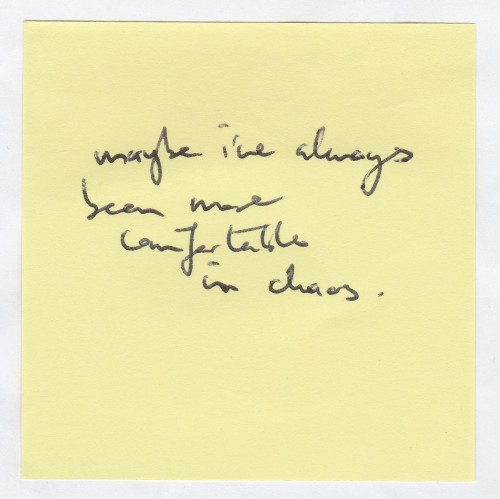 maybe i've always
been more
comfortable
in chaos.